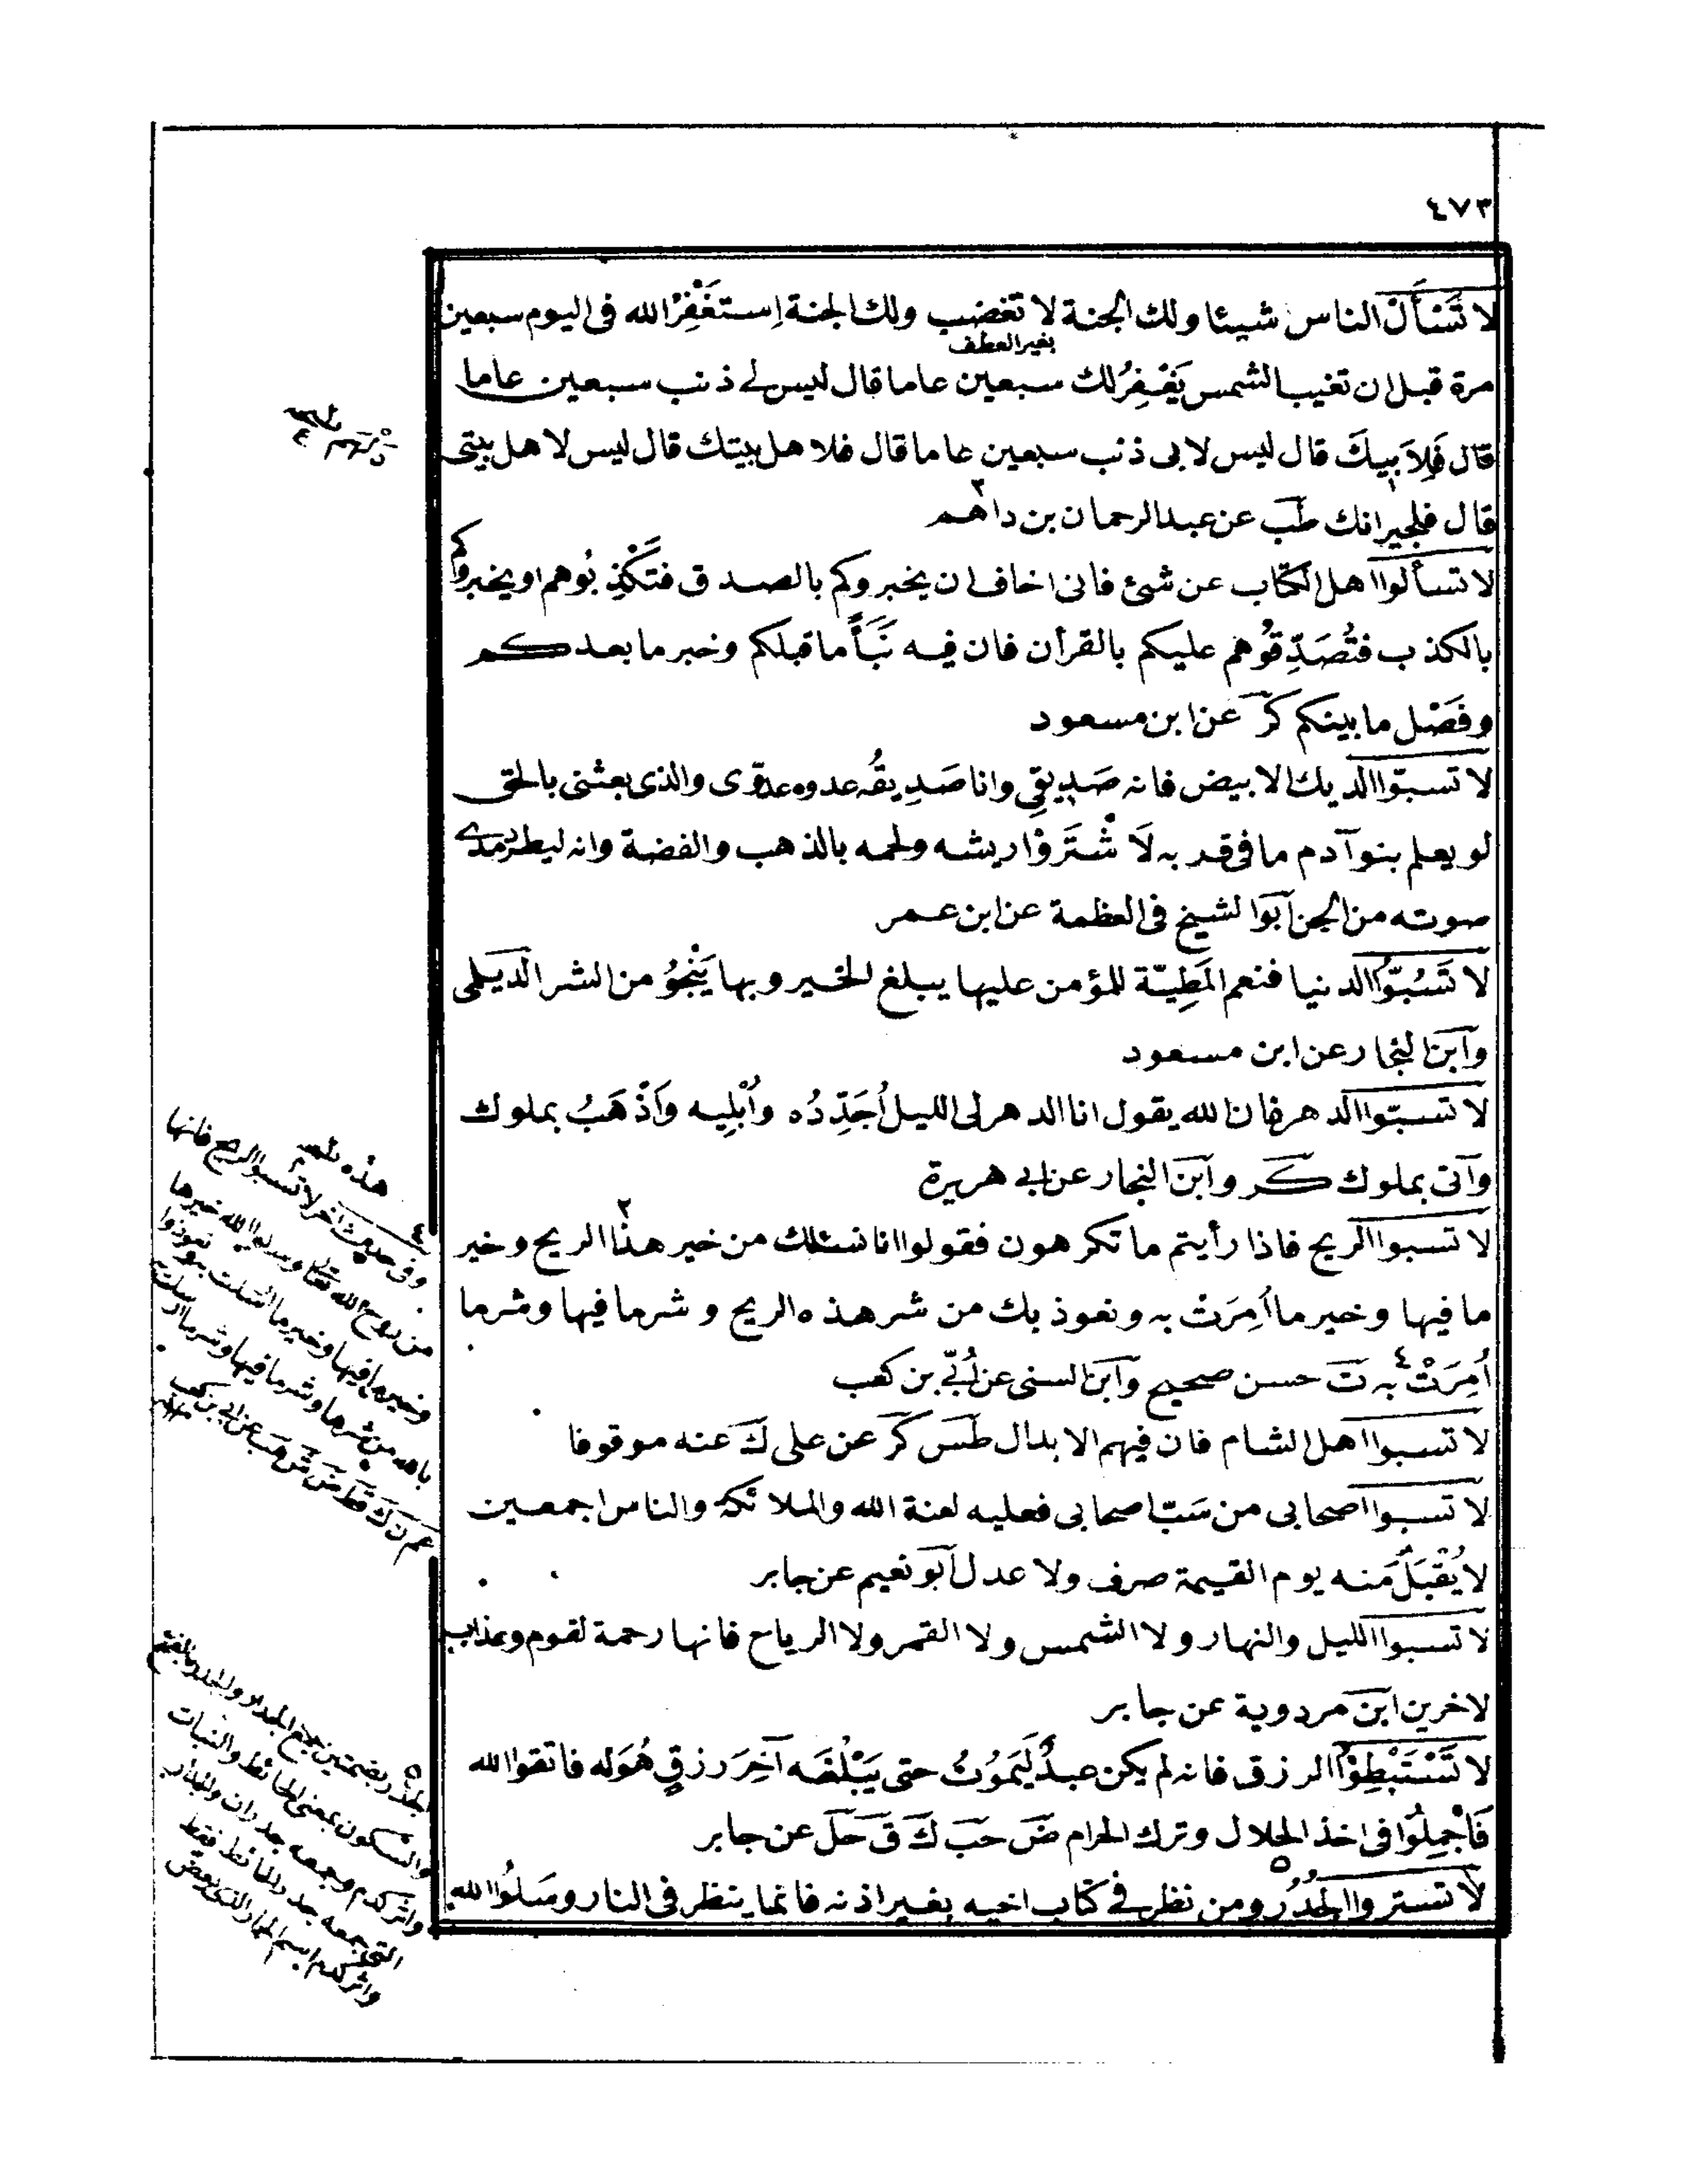 ٤٧٣
لا تَسْأَلْ الناس شيئا ولك الجنة لا تغضب ولك الجنة اِستَغْفِرْ الله فى اليوم سبعين
بغير العطف
مرة قبل ان تغيب الشمس يَغْفِرْلك سبعين عاما قال ليس لے ذنب سبعين عاما
قال فَلِاَبيكَ قال ليس لابى ذنب سبعين عاما قال فلاهل بيتك قال ليس لاهل بيتى
قال فلجيرانك طب عن عبد الرحمان بن داهم ٢
لا تسألوا اهل الكتاب عن شئ فانى اخاف ان يخبروكم بالصدق فتكَذِّبُوهم او يخبروكم
بالكذب فتُصَدِّقُوهم عليكم بالقرأن فان فيه نَبَأَ ما قبلكم وخبر ما بعدكم
وفَصْل ما بينكم كر عن ابن مسعود
لا تسبّوا الديك الابيض فانه صَدِيقِى وانا صَدِيقُه عدوه عدوّى والذى بعثنى بالحق
لو يعلم بنو آدم ما فى قربه لَاشْتَرَوْا ريشه ولحمه بالذهب والفضة وانه ليطرد مدے
صوته من الجن ابو الشيخ فى العظمة عن ابن عمر
لا تَسُبّوا الدنيا فنعم المَطِيّة للمؤمن عليها يبلغ الخير وبها يَنْجُوُ من الشر الديلمى
وابن النجار عن ابن مسعود
لا تسبّوا الدهر فان الله يقول انا الدهر لى الليل اُجَدِّدُه واُبْلِيه وَاَذْهَبُ بملوك
وآتى بملوك كر وابن النجار عن ابے هريرة
لا تسبوا الريح فاذا رأيتم ما تكرهون فقولوا انا نسئلك من خير هذا ٢ الريح وخير
ما فيها وخير ما اُمِرَتْ به ونعوذ بك من شر هذه الريح وشر ما فيها وشر ما
اُمِرَتْ به ٤ ت حسن صحيح وابن السنى عن اُبَيّ بن كعب
لا تسبوا اهل الشام فان فيهم الابدال طس كر عن على ك عنه موقوفا
لا تسبوا اصحابى من سَبّ اصحابى فعليه لعنة الله والملائكة والناس اجمعين
لا يُقْبَلُ منه يوم القيمة صرف ولا عدل ابو نعيم عن جابر
لا تسبوا الليل والنهار ولا الشمس ولا القمر ولا الرياح فانها رحمة لقوم وعذاب
لاخرين ابن مردوية عن جابر
لا تَسْتَبْطِؤُا الرزق فانه لم يكن عبدٌ لِيَمُوْتُ حتى يَبْلُغَه آخِرَ رزقٍ هُوَ له فاتقوا الله
فَاَجْمِلُوا فى اخذ الحلال وترك الحرام ض حب ك ق حل عن جابر
لا تستروا الجُدُرَ ٥ ومن نظر فے كتاب اخيه بغير اذنه فانما ينظر فى النار وسَلُوا الله
هذه
٤ وفى حديث اخر لا تسبوا الريح فانها
من روح الله تعالى وسلوا الله خيرها
وخير ما فيها وخير ما ارسلت به وتعوذوا
بالله من شرها وشر ما فيها وشر ما ارسلت به
٥ الجدر بضمتين جمع الجدار والجدر بالفتح
والسكون بمعنى الحائط والنبات
وجمعه جدران والجدار
الحائط فقط